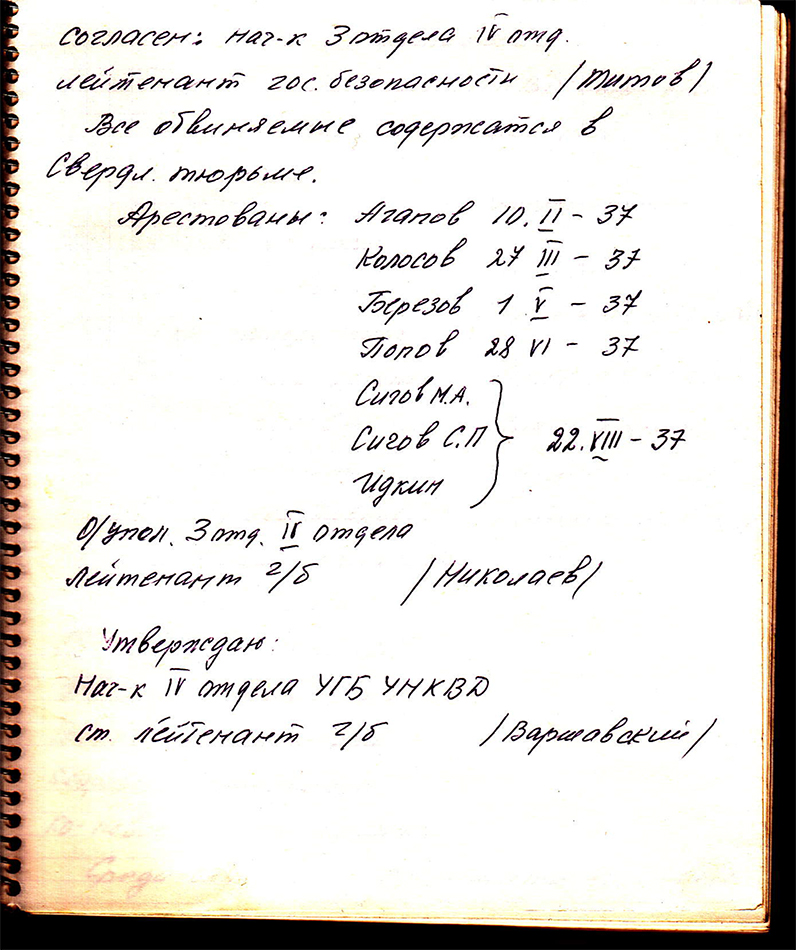 согласен: нач-к 3 отдела IV отд.
лейтенант гос. безопасности /Титов/
Все обвиняемые содержатся в
Свердл. тюрьме.
Арестованы: Агапов 10. II – 37
Колосов 27 III – 37
Березов 1 V – 37
Попов 28 VI – 37
Сигов М.А.
Сигов С.П } 22. VIII – 37
Идкин
О/упол. 3 отд. IV отдела
лейтенант г/б /Николаев/
Утверждаю:
Нач-к IV отдела УГБ УНКВД
ст. лейтенант г/б /Варшавский/